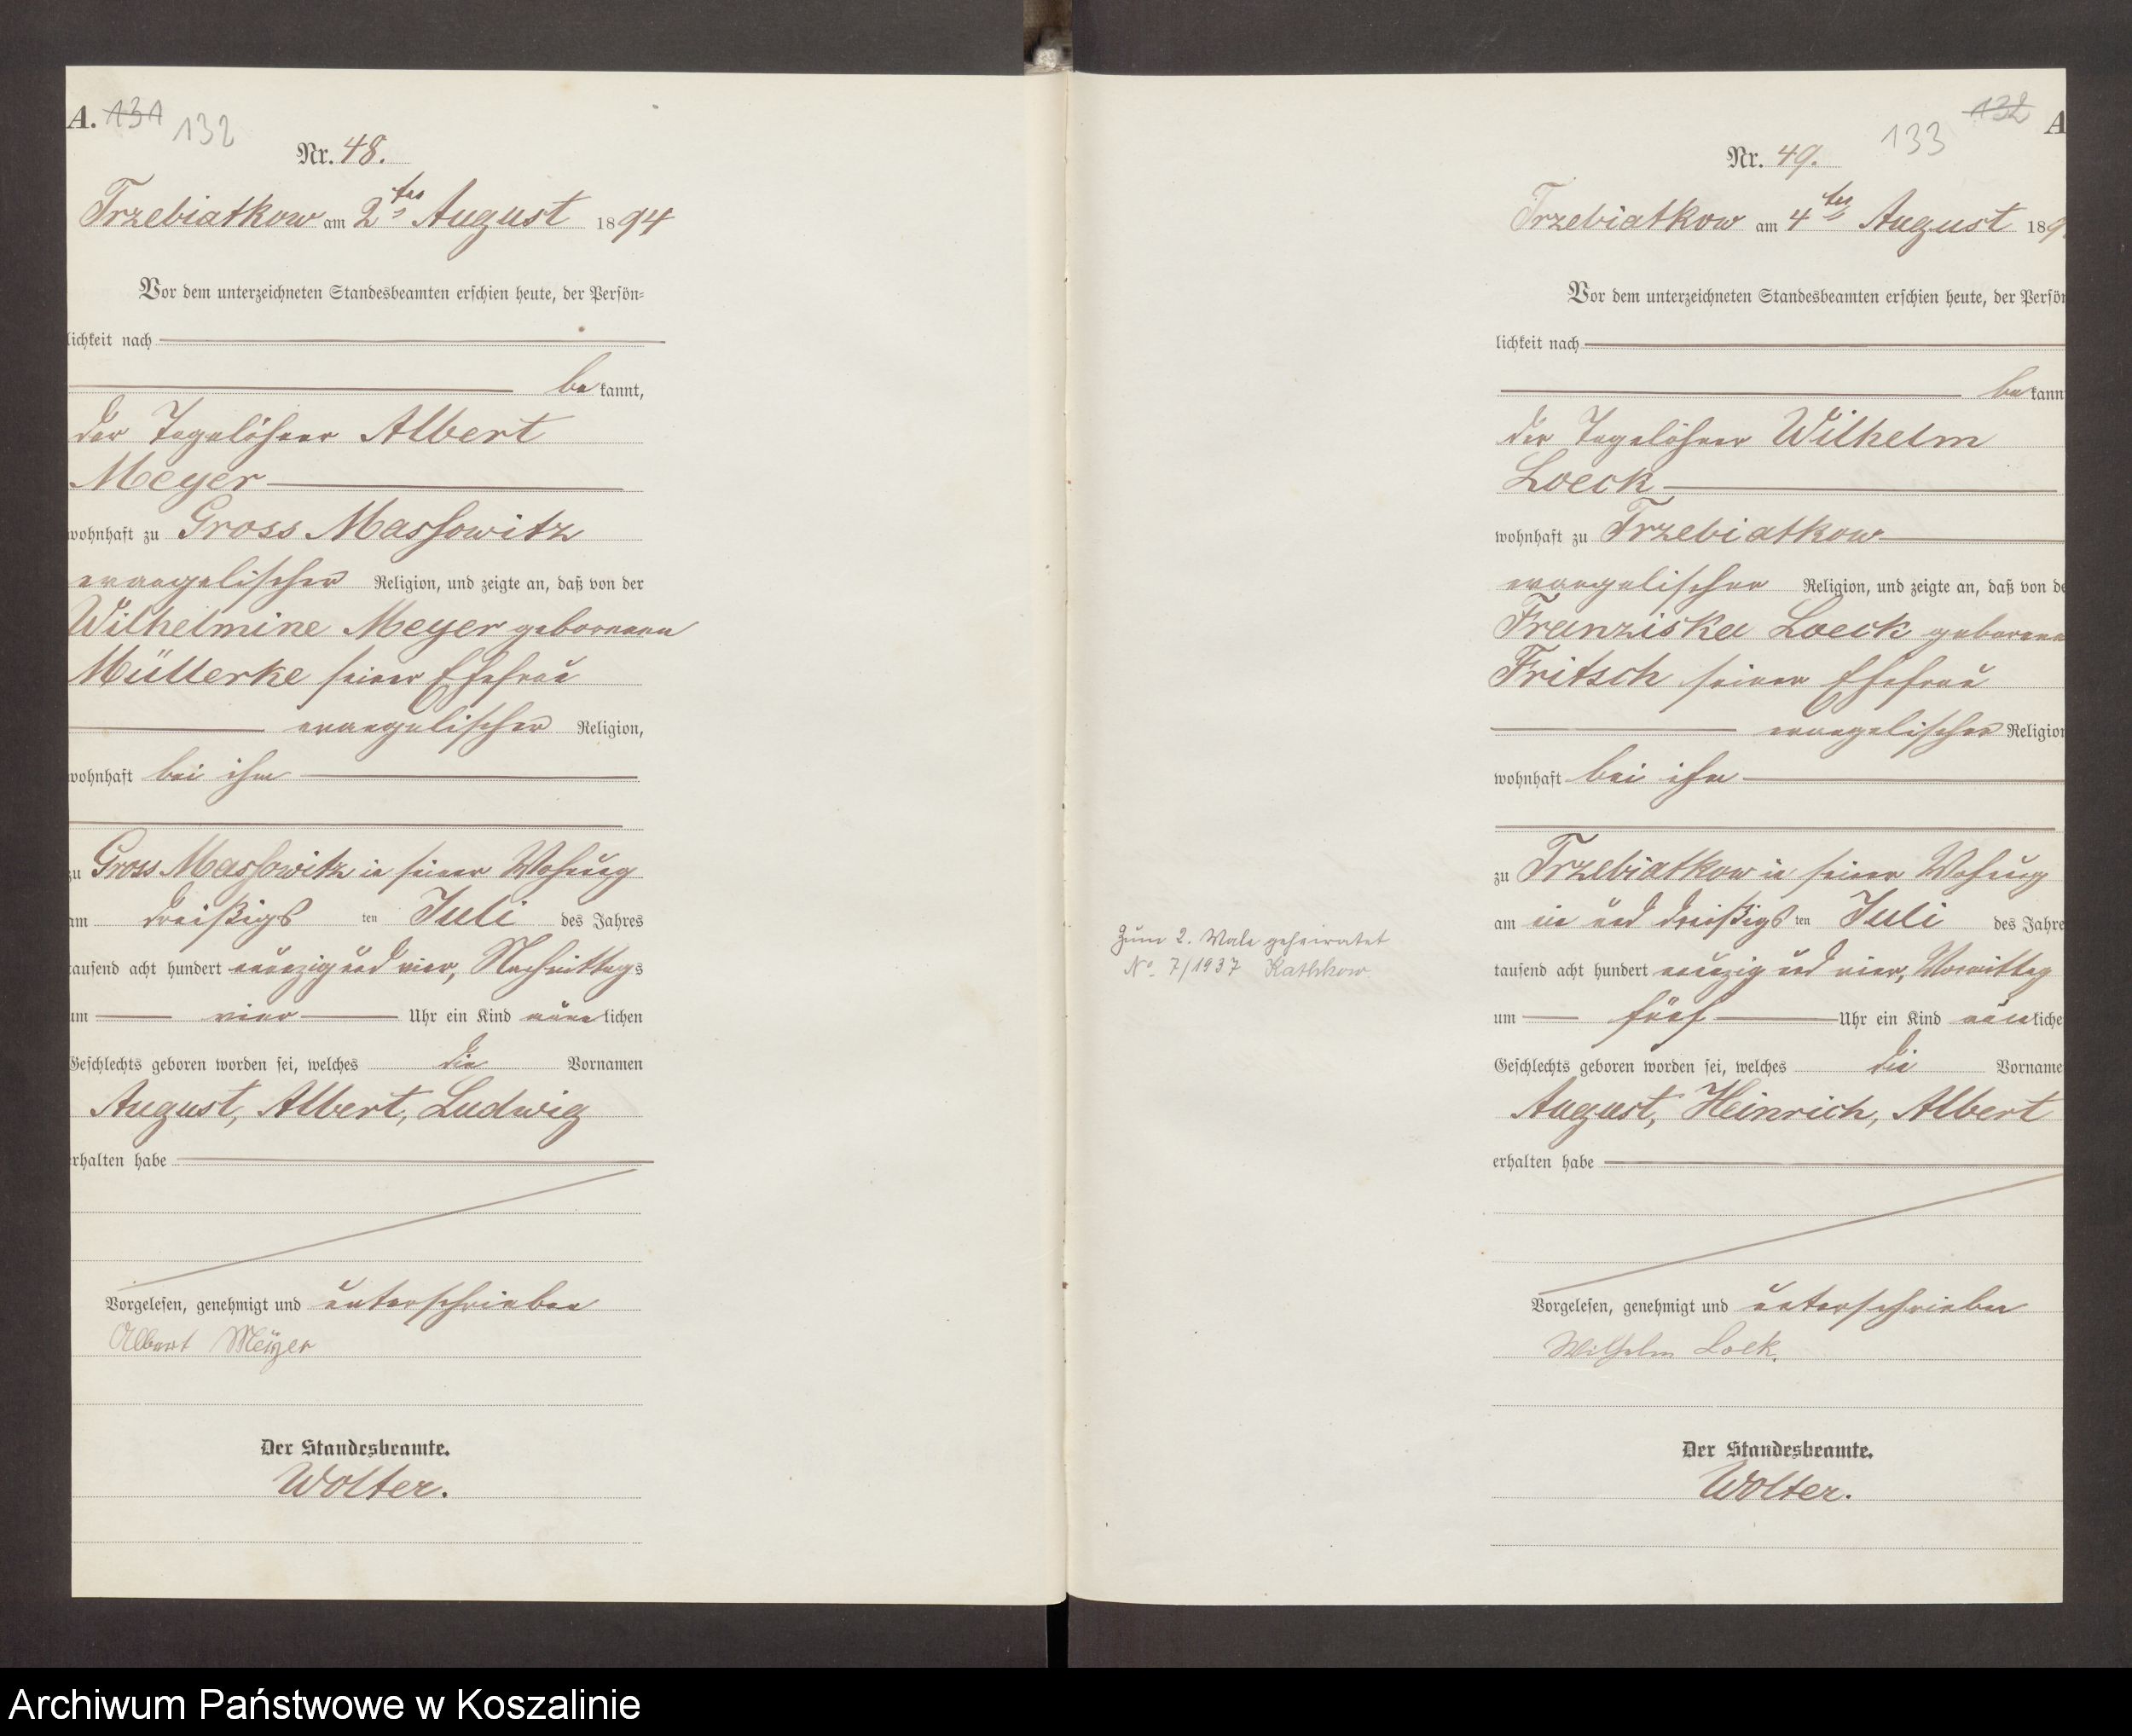 A. 131 132
Nr. 48.
Trzebiatkow am 2ten August 1894
Vor dem unterzeichneten Standesbeamten erschien heute, der Persön=
lichkeit nach
be kannt,
der Tagelöhner Albert
Meyer
wohnhaft zu Gross Massowitz
evangelischer Religion, und zeigte an, daß von der
Wilhelmine Meyer geborenen
Müllerke seiner Ehefrau
evangelischer Religion,
wohnhaft bei ihm
zu Gross Massowitz in seiner Wohnung
am dreißigs ten Juli des Jahres
tausend acht hundert neunzig und vier, Nachmittags
um vier Uhr ein Kind männlichen
Geschlechts geboren worden sei, welches die Vornamen
August, Albert, Ludwig
erhalten habe
Vorgelesen, genehmigt und unterschrieben
Albert Meyer
Der Standesbeamte.
Wolter.
132 A
133
Nr. 49.
Trzebiatkow am 4ten August 189
Vor dem unterzeichneten Standesbeamten erschien heute, der Persön
lichkeit nach
be kann
der Tagelöhner Wilhelm
Loeck
wohnhaft zu Trzebiatkow
evangelischer Religion, und zeigte an, daß von de
Franziska Loeck geborene
Fritsch seiner Ehefrau
evangelischer Religion
wohnhaft bei ihm
zu Trzebiatkow in seiner Wohnung
am ein und dreißigs ten Juli des Jahre
tausend acht hundert neunzig und vier, Vormittag
um fünf Uhr ein Kind männliche
Geschlechts geboren worden sei, welches die Vorname
August, Heinrich, Albert
erhalten habe
Vorgelesen, genehmigt und unterschrieben
Wilhelm Loek.
Der Standesbeamte.
Wolter.
Zum 2. Male geheiratet
No. 7/1937 Kathkow
Archiwum Państwowe w Koszalinie